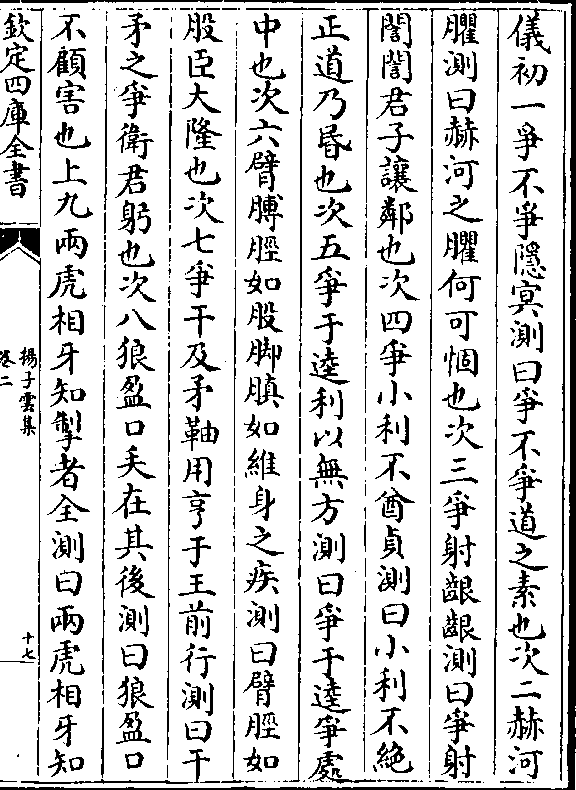 儀初一爭不爭隱冥測曰爭不爭道之素也次二赫河
臞測曰赫河之臞何可㥷也次三爭射齦齦測曰爭射
誾誾君子讓鄰也次四爭小利不酋貞測曰小利不絶
正道乃昬也次五爭于逵利以無方測曰爭于逵爭處
中也次六臂膊脛如股脚䐜如維身之疾測曰臂脛如
股臣大隆也次七爭干及矛軸用亨于王前行測曰干
矛之爭衛君躬也次八狼盈口矢在其後測曰狼盈口
不顧害也上九兩虎相牙知掣者全測曰兩虎相牙知
欽定四庫全書
揚子雲集
卷二
十七